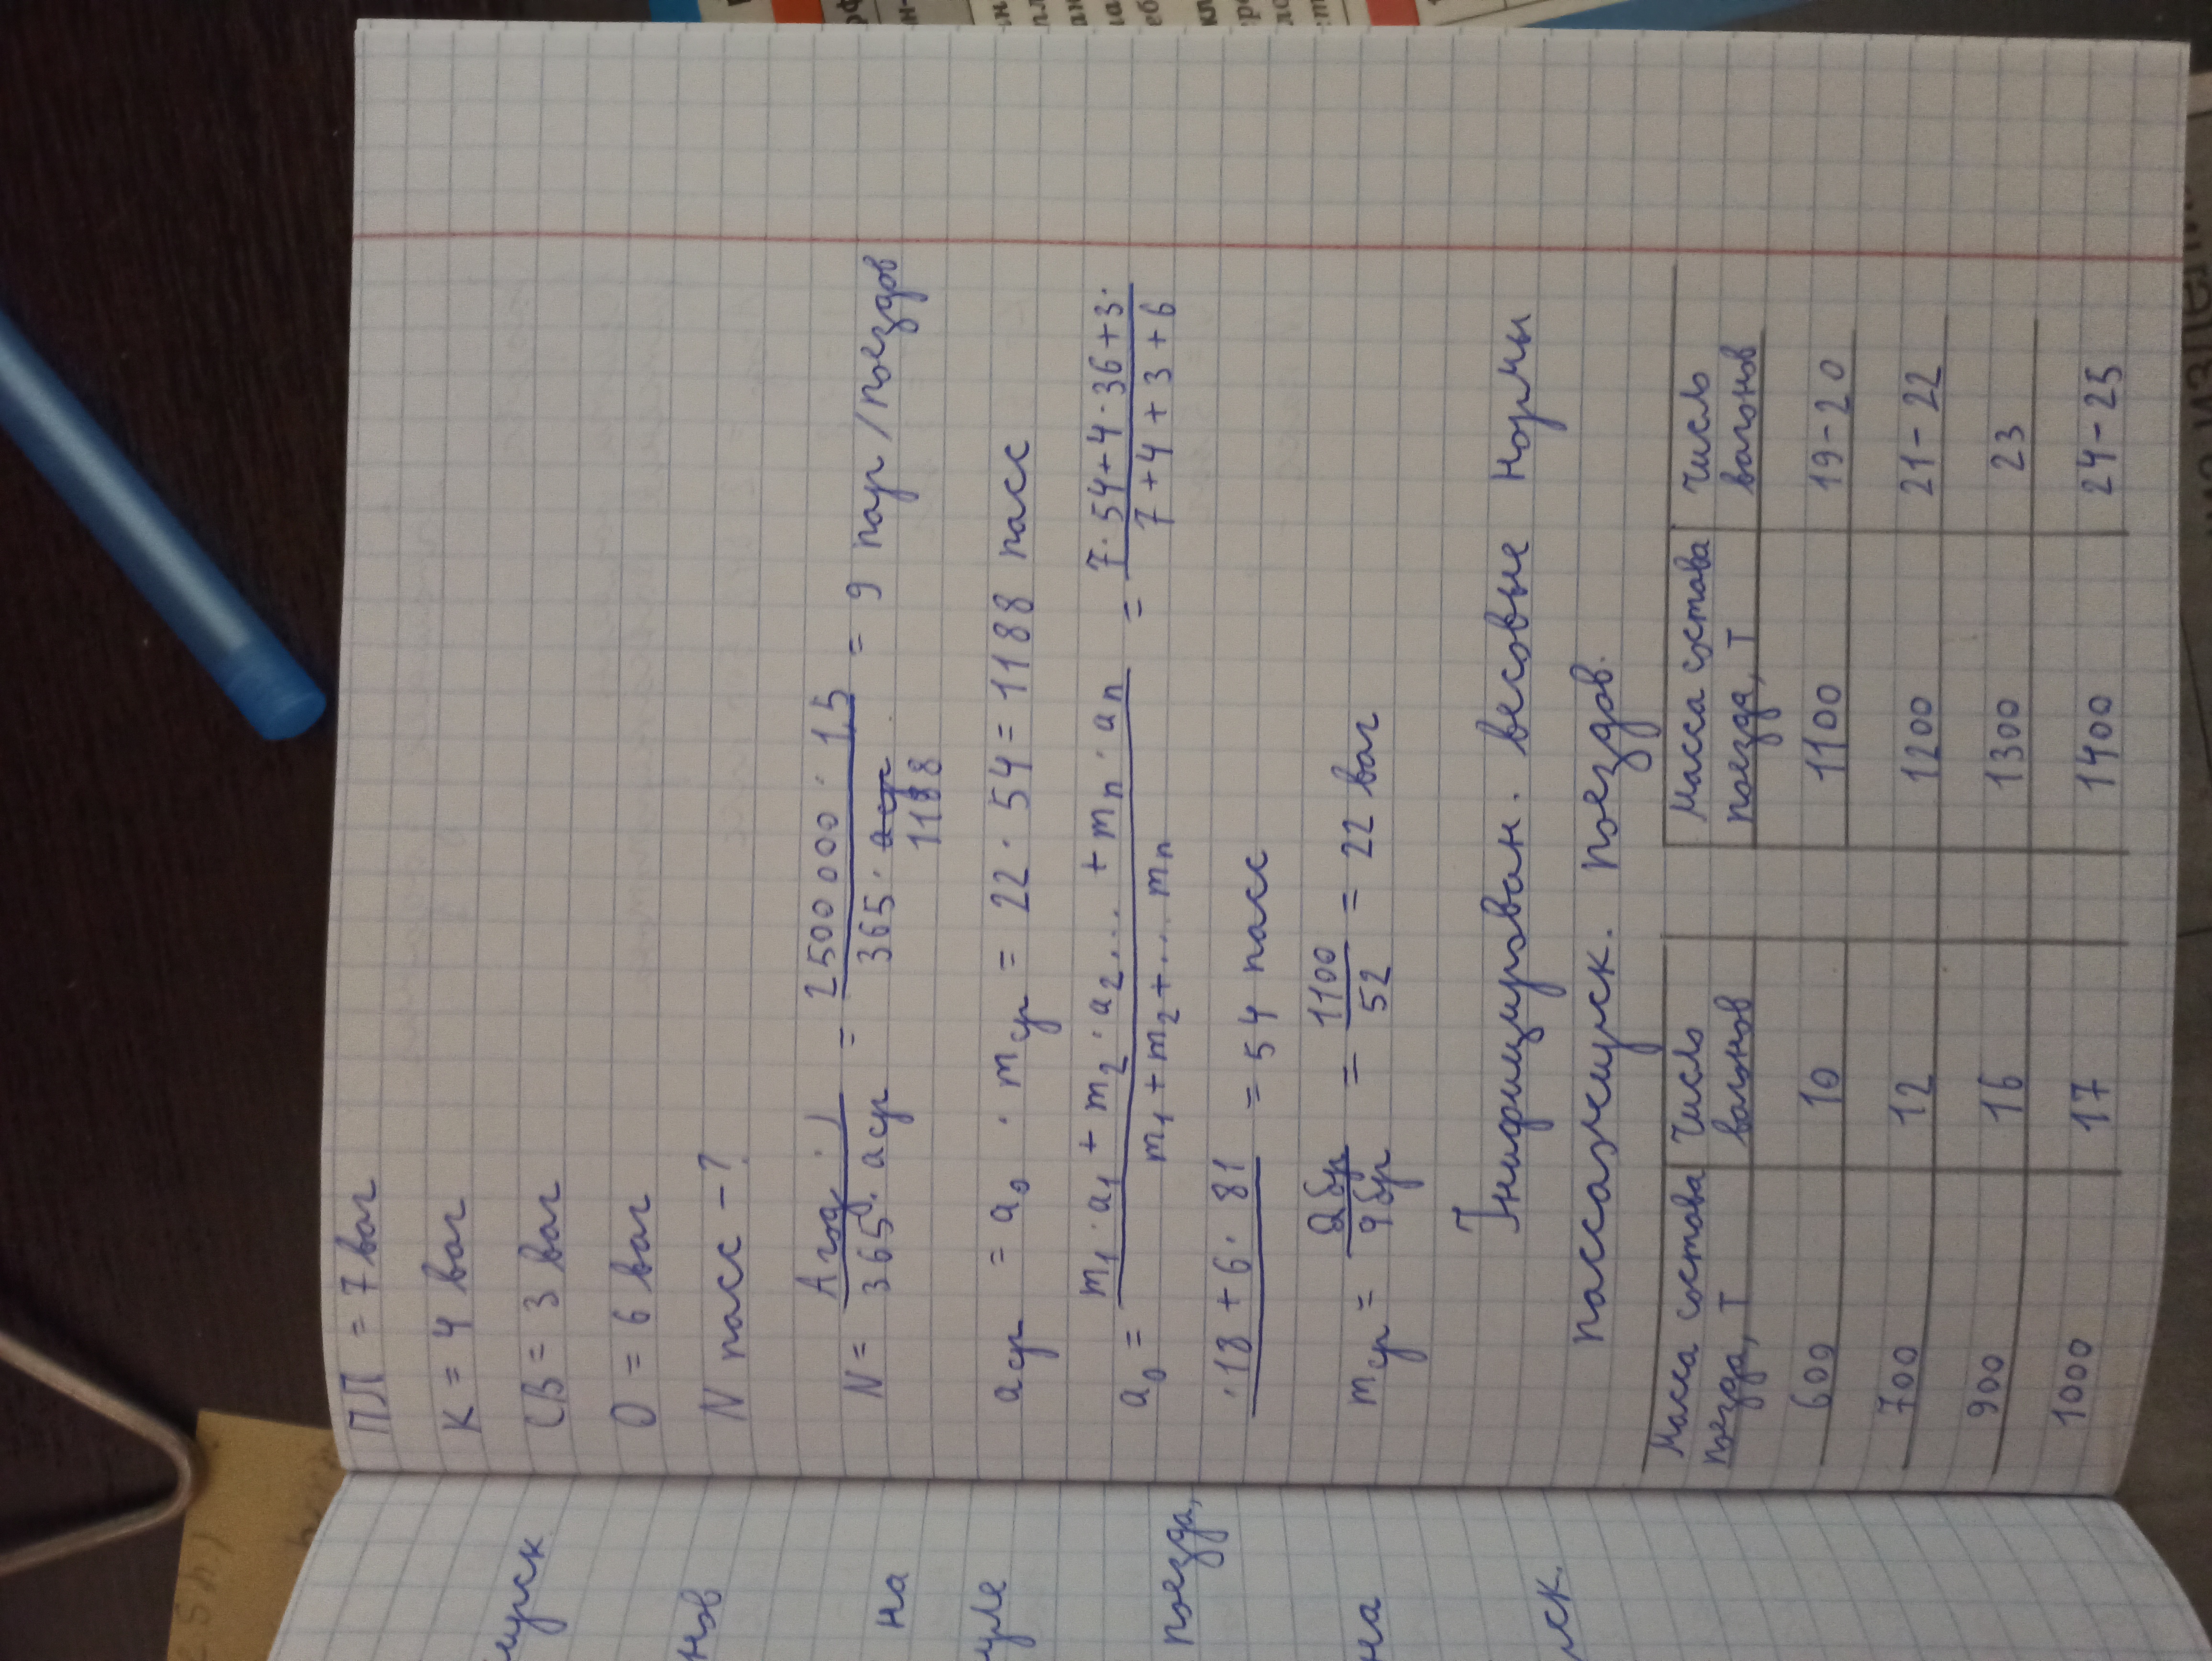 ПЛ = 7 ваг
К = 4 ваг
СВ = 3 ваг
О = 6 ваг
N пасс - ?
N = Aгод · j / 365 · aср = 2500 000 · 1,5 / 365 · aср 1188 = 9 пар/поездов
aср = a₀ · mср = 22 · 54 = 1188 пасс
a₀ = m₁ · a₁ + m₂ · a₂ ... + mₙ · aₙ / m₁ + m₂ + ... mₙ = 7 · 54 + 4 · 36 + 3 · / 7 + 4 + 3 + 6
· 18 + 6 · 81 = 54 пасс
mср = Qбр / qбр = 1100 / 52 = 22 ваг
Унифицирован. весовые нормы
пассажирск. поездов.
Масса состава поезда, т | Число вагонов | Масса состава поезда, т | Число вагонов
600 | 10 | 1100 | 19-20
700 | 12 | 1200 | 21-22
900 | 16 | 1300 | 23
1000 | 17 | 1400 | 24-25
нов
на
поезда,
на